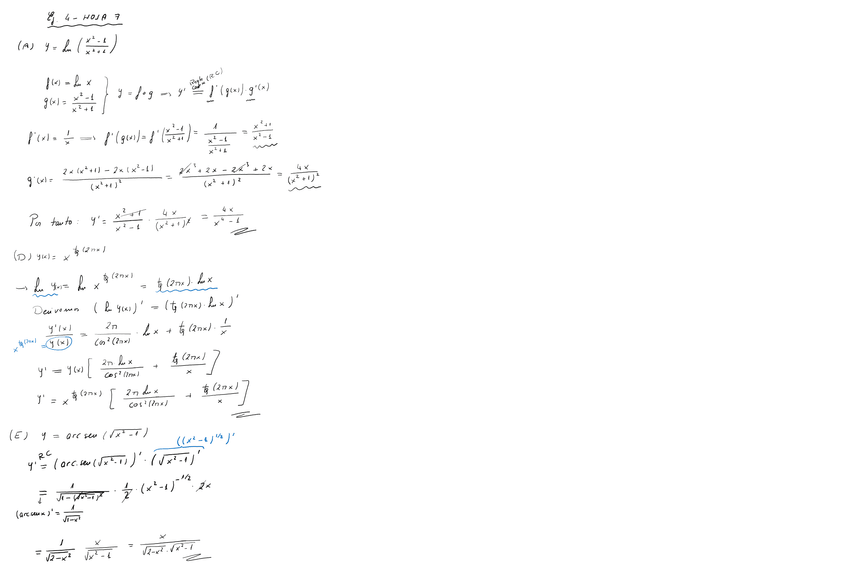 Ej. 4 - HOJA 7
(A) y = ln (x²-1 / x²+1)
f(x) = ln x
g(x) = x²-1 / x²+1 } y = f∘g → y' = (Regla cadena (RC)) f'(g(x)) · g'(x)
f'(x) = 1/x ⟹ f'(g(x)) = f'(x²-1 / x²+1) = 1 / (x²-1 / x²+1) = x²+1 / x²-1
g'(x) = 2x(x²+1) - 2x(x²-1) / (x²+1)² = 2x³ + 2x - 2x³ + 2x / (x²+1)² = 4x / (x²+1)²
Por tanto: y' = x²+1 / x²-1 · 4x / (x²+1)² = 4x / x⁴-1
(D) y(x) = x^tg(2πx)
→ ln y(x) = ln x^tg(2πx) = tg(2πx) · ln x
Derivamos (ln y(x))' = (tg(2πx) · ln x)'
x^tg(2πx) = y'(x) / y(x) = 2π / cos²(2πx) · ln x + tg(2πx) · 1/x
y' = y(x) [ 2π ln x / cos²(2πx) + tg(2πx) / x ]
y' = x^tg(2πx) [ 2π ln x / cos²(2πx) + tg(2πx) / x ]
(E) y = arc sen (√x²-1)
((x²-1)^1/2)'
y' = (RC) (arc sen(√x²-1))' · (√x²-1)'
= 1 / √1-(√x²-1)² · 1/2 · (x²-1)^-1/2 · 2x
(arcsen x)' = 1 / √1-x²
= 1 / √2-x² x / √x²-1 = x / √2-x² · √x²-1